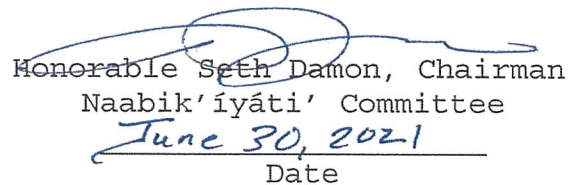 Honorable Seth Damon, Chairman
Naabik'íyáti' Committee
June 30, 2021
Date